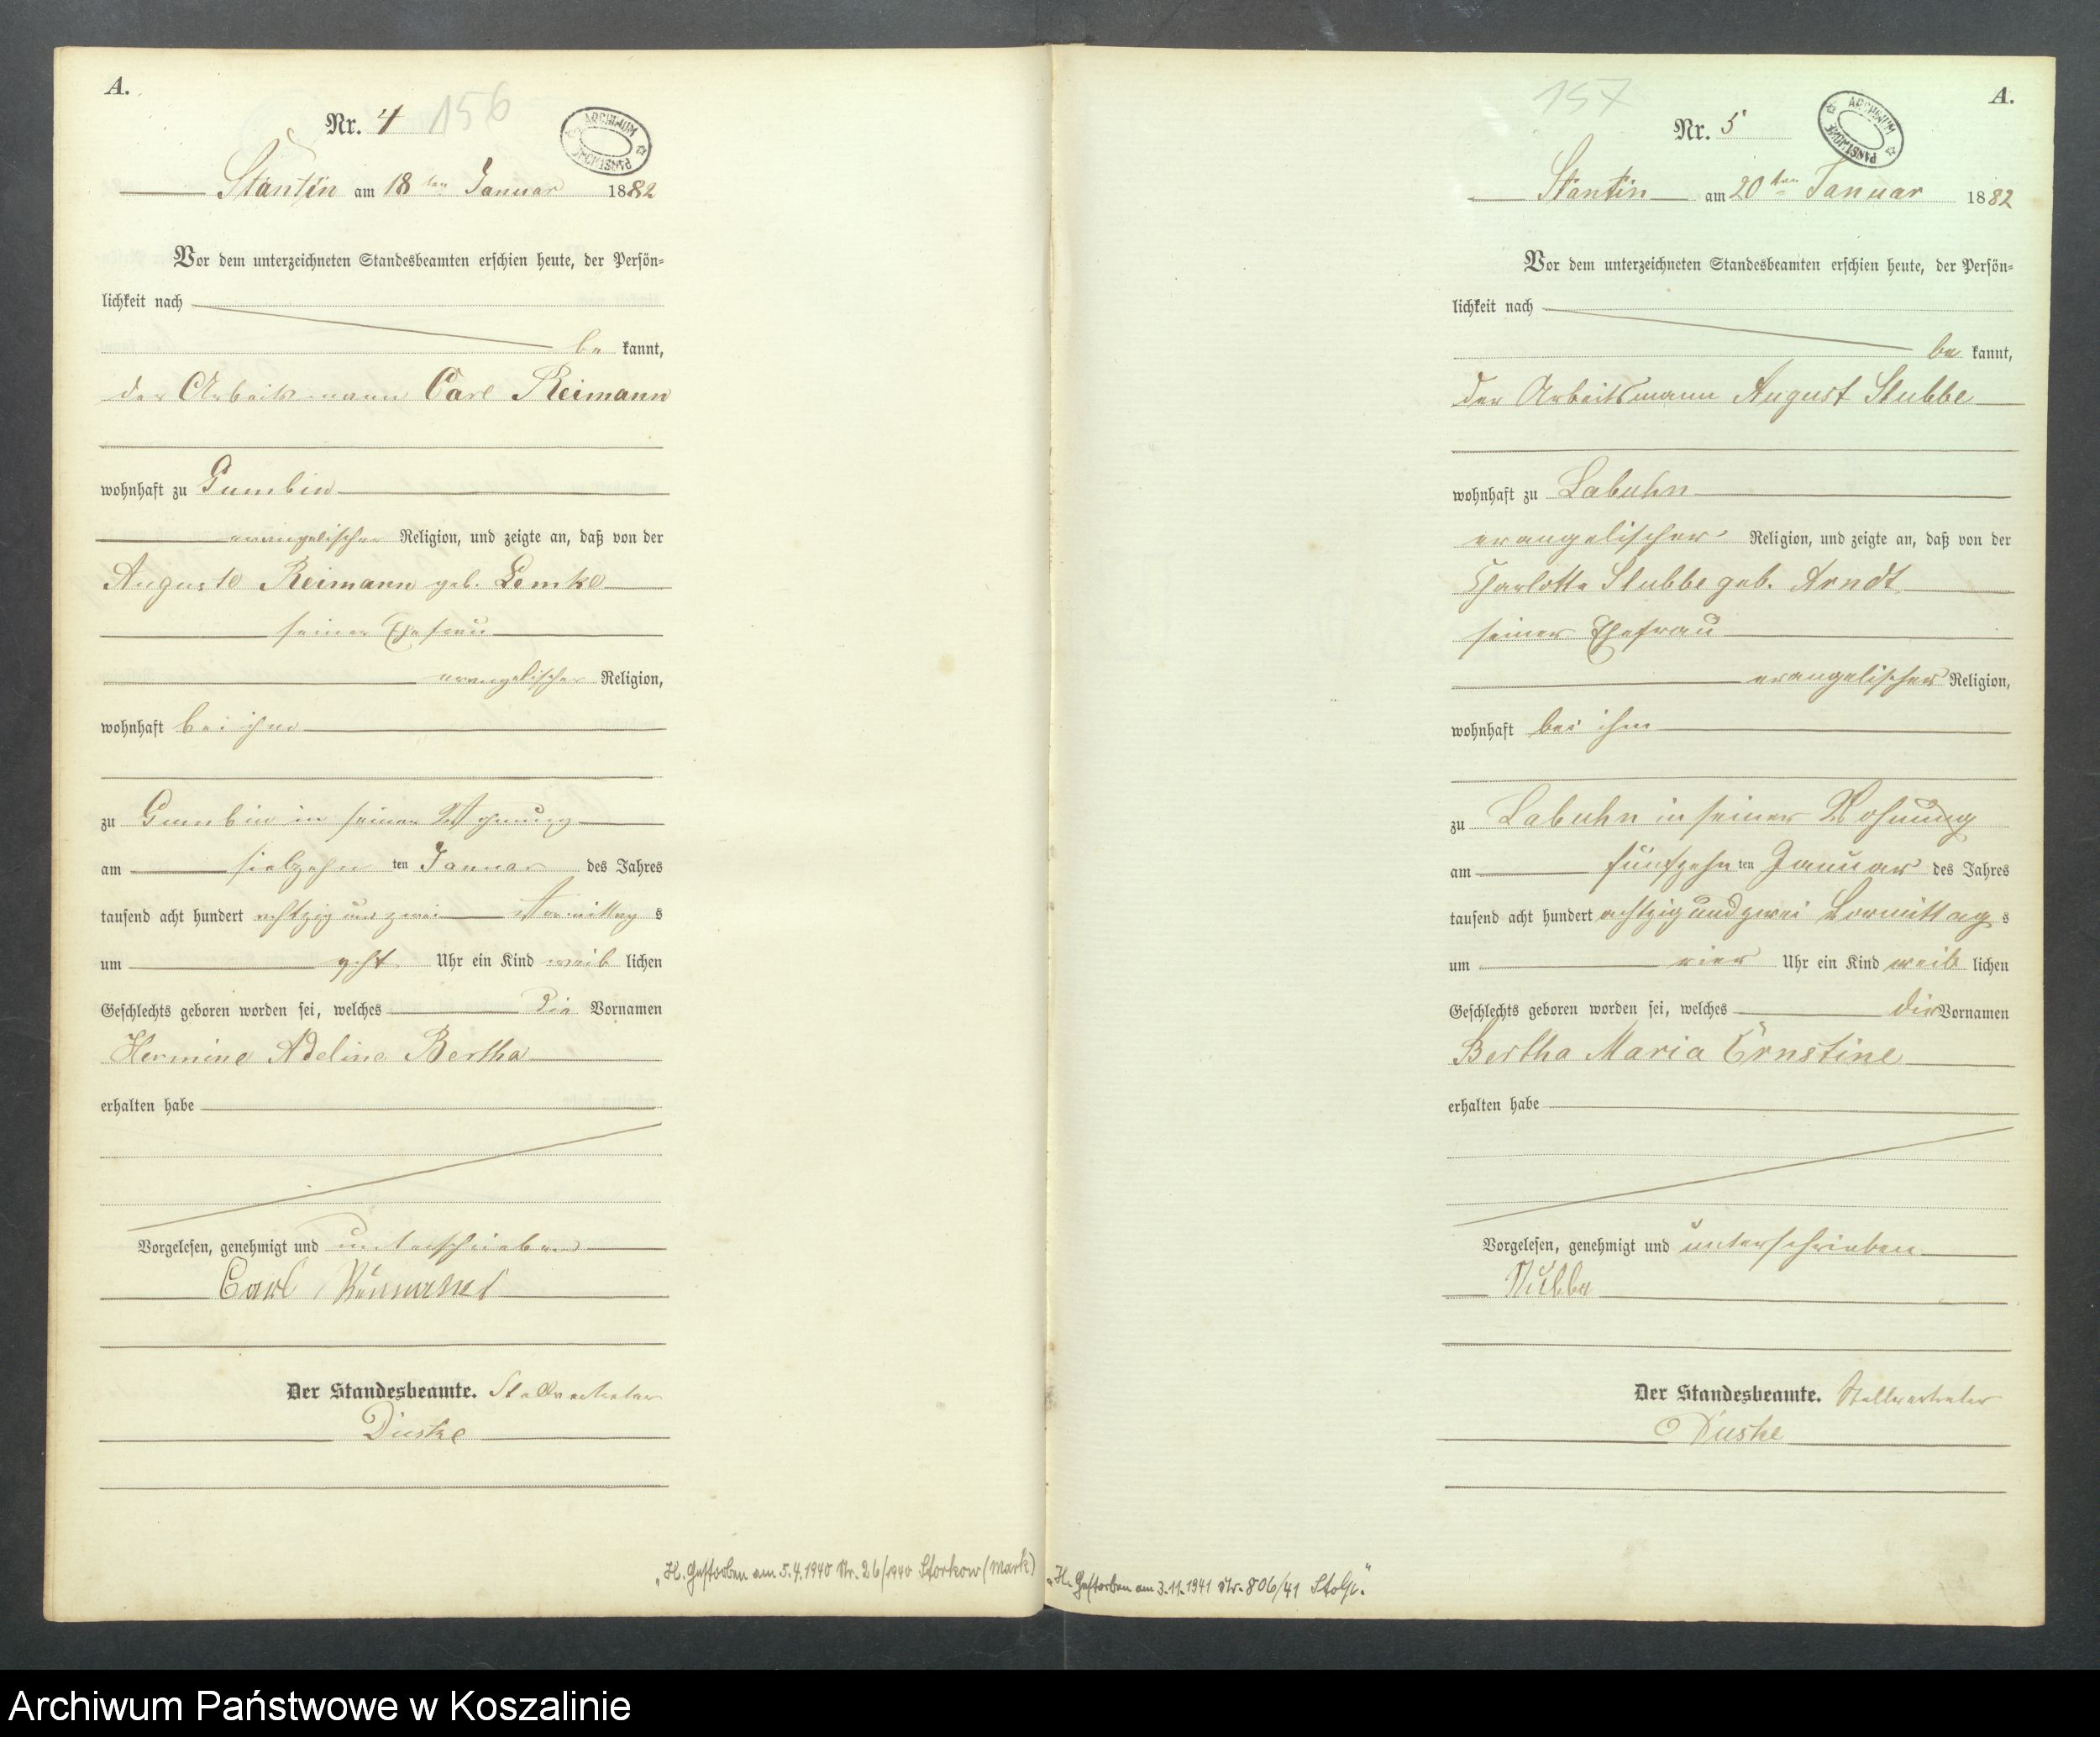 A.
Nr. 4 156
ARCHIWUM PAŃSTWOWE
Stantin am 18ten Januar 1882
Vor dem unterzeichneten Standesbeamten erschien heute, der Persön-
lichkeit nach
be kannt,
der Arbeitsmann Carl Reimann
wohnhaft zu Gumbin
evangelischer Religion, und zeigte an, daß von der
Auguste Reimann geb. Lemke
seiner Ehefrau
evangelischer Religion,
wohnhaft bei ihm
zu Gumbin in seiner Wohnung
am siebzehn ten Januar des Jahres
tausend acht hundert achtzig und zwei Vormittag s
um acht Uhr ein Kind weib lichen
Geschlechts geboren worden sei, welches die Vornamen
Hermine Adeline Bertha
erhalten habe
Vorgelesen, genehmigt und unterschrieben
Carl Reimann
Der Standesbeamte. Stellvertreter
Duske
"H. Gestorben am 5.4.1940 Nr. 26/1940 Storkow (Mark)
157 A.
Nr. 5
ARCHIWUM PAŃSTWOWE
Stantin am 20ten Januar 1882
Vor dem unterzeichneten Standesbeamten erschien heute, der Persön-
lichkeit nach
be kannt,
der Arbeitsmann August Stubbe
wohnhaft zu Labuhn
evangelischer Religion, und zeigte an, daß von der
Charlotte Stubbe geb. Arndt
seiner Ehefrau
evangelischer Religion,
wohnhaft bei ihm
zu Labuhn in seiner Wohnung
am fünfzehn ten Januar des Jahres
tausend acht hundert achtzig und zwei Vormittag s
um vier Uhr ein Kind weib lichen
Geschlechts geboren worden sei, welches die Vornamen
Bertha Maria Ernstine
erhalten habe
Vorgelesen, genehmigt und unterschrieben
Stubbe
Der Standesbeamte. Stellvertreter
Duske
"H. Gestorben am 3.11.1941 Nr. 806/41 Stolp."
Archiwum Państwowe w Koszalinie